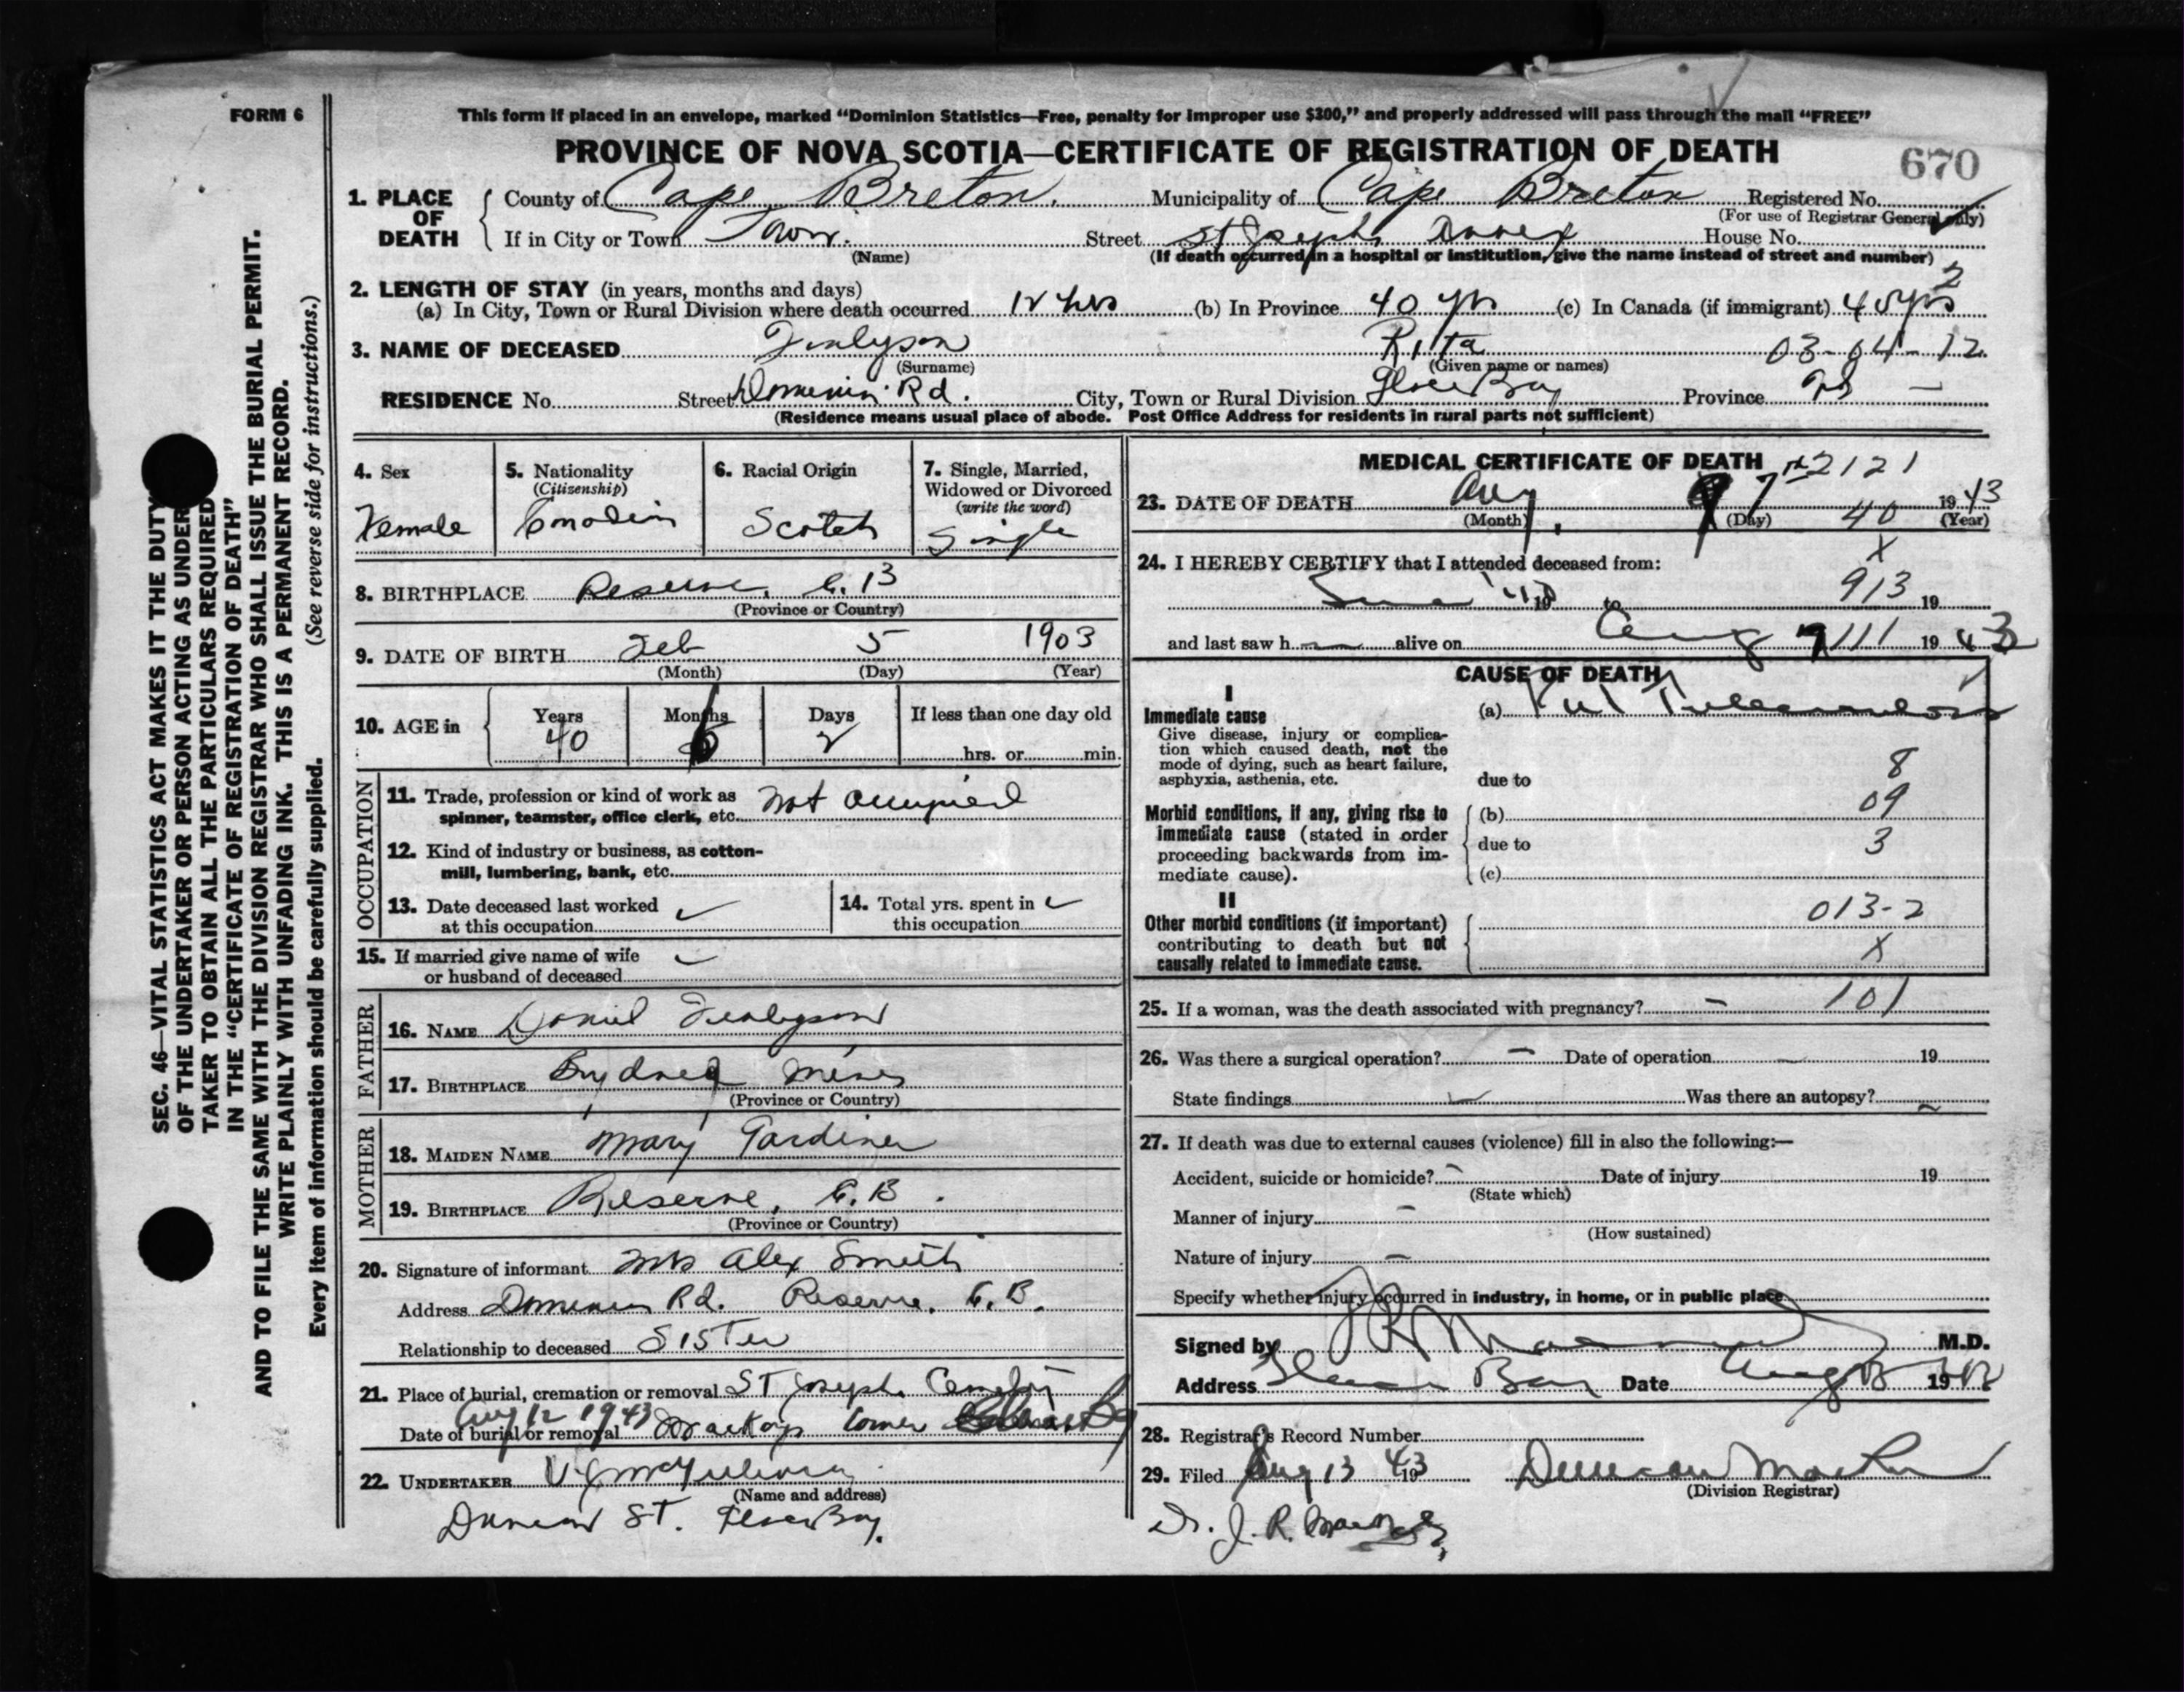 FORM 6
This form if placed in an envelope, marked "Dominion Statistics—Free, penalty for improper use $300," and properly addressed will pass through the mail "FREE"
PROVINCE OF NOVA SCOTIA—CERTIFICATE OF REGISTRATION OF DEATH
670
1. PLACE OF DEATH
County of Cape Breton. Municipality of Cape Breton Registered No.
(For use of Registrar General only)
If in City or Town Town. Street St Josephs Annex House No.
(Name) (If death occurred in a hospital or institution, give the name instead of street and number)
2
2. LENGTH OF STAY (in years, months and days)
(a) In City, Town or Rural Division where death occurred 12 hrs (b) In Province 40 yrs (c) In Canada (if immigrant) 40 yrs
3. NAME OF DECEASED Finlyson Rita 03-04-12
(Surname) (Given name or names)
RESIDENCE No. Street Dominion Rd. City, Town or Rural Division Glace Bay Province NS —
(Residence means usual place of abode. Post Office Address for residents in rural parts not sufficient)
4. Sex Female
5. Nationality (Citizenship) Canadian
6. Racial Origin Scotch
7. Single, Married, Widowed or Divorced (write the word) Single
8. BIRTHPLACE Reserve, C.B
(Province or Country)
9. DATE OF BIRTH Feb 5 1903
(Month) (Day) (Year)
10. AGE in Years 40 Months 6 Days 2 If less than one day old
hrs. or min.
OCCUPATION
11. Trade, profession or kind of work as spinner, teamster, office clerk, etc. not occupied
12. Kind of industry or business, as cotton-mill, lumbering, bank, etc.
13. Date deceased last worked at this occupation
14. Total yrs. spent in this occupation
15. If married give name of wife or husband of deceased
FATHER
16. NAME Daniel Finlayson
17. BIRTHPLACE Sydney Mines
(Province or Country)
MOTHER
18. MAIDEN NAME Mary Gardiner
19. BIRTHPLACE Reserve, C.B.
(Province or Country)
20. Signature of informant Mrs Alex Smith
Address Dominion Rd. Reserve. C.B.
Relationship to deceased Sister
21. Place of burial, cremation or removal St Josephs Cemetery
Date of burial or removal Aug 12 1943 MacKays Corner
22. UNDERTAKER
(Name and address)
St. Glace Bay.
MEDICAL CERTIFICATE OF DEATH 2121
23. DATE OF DEATH Aug 7 1943
(Month) (Day) 40 (Year)
24. I HEREBY CERTIFY that I attended deceased from: X
to 913 19
and last saw h alive on Aug 111 1943
CAUSE OF DEATH
I
Immediate cause
Give disease, injury or complication which caused death, not the mode of dying, such as heart failure, asphyxia, asthenia, etc.
(a) Pul Tuberculosis
due to 8
Morbid conditions, if any, giving rise to immediate cause (stated in order proceeding backwards from immediate cause).
(b) 09
due to 3
(c)
II
Other morbid conditions (if important) contributing to death but not causally related to immediate cause.
013-2
X
25. If a woman, was the death associated with pregnancy? — 101
26. Was there a surgical operation? — Date of operation — 19
State findings Was there an autopsy?
27. If death was due to external causes (violence) fill in also the following:—
Accident, suicide or homicide? — Date of injury 19
(State which)
Manner of injury —
(How sustained)
Nature of injury —
Specify whether injury occurred in industry, in home, or in public place
Signed by M.D.
Address Glace Bay Date Aug 19
28. Registrar's Record Number
29. Filed Aug 13 1943 Duncan
(Division Registrar)
Dr. J. R.
SEC. 46—VITAL STATISTICS ACT MAKES IT THE DUTY
OF THE UNDERTAKER OR PERSON ACTING AS UNDER
TAKER TO OBTAIN ALL THE PARTICULARS REQUIRED
IN THE "CERTIFICATE OF REGISTRATION OF DEATH"
AND TO FILE THE SAME WITH THE DIVISION REGISTRAR WHO SHALL ISSUE THE BURIAL PERMIT.
WRITE PLAINLY WITH UNFADING INK. THIS IS A PERMANENT RECORD.
Every item of information should be carefully supplied. (See reverse side for instructions.)